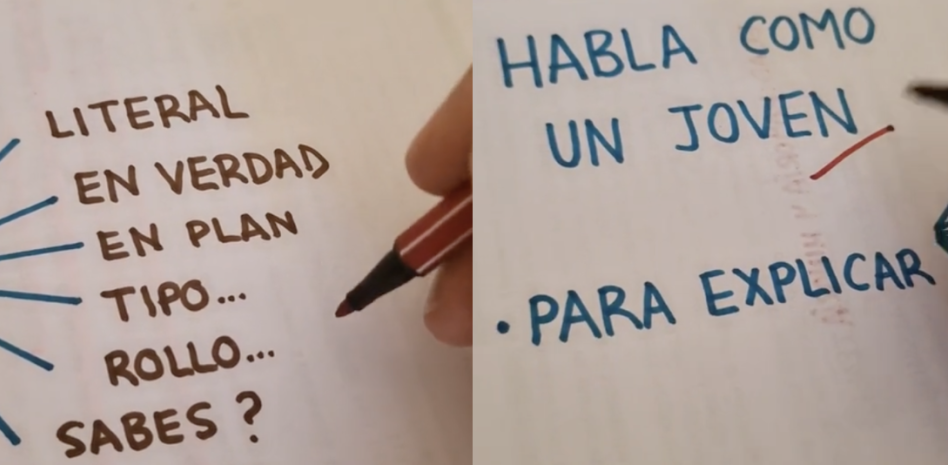 LITERAL
EN VERDAD
EN PLAN
TIPO...
ROLLO...
SABES?
HABLA COMO
UN JOVEN
• PARA EXPLICAR